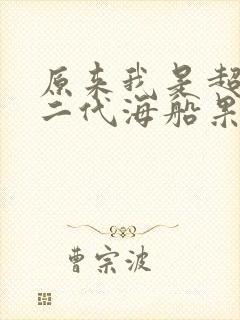 原来我是超
二代海船果
曹宗波